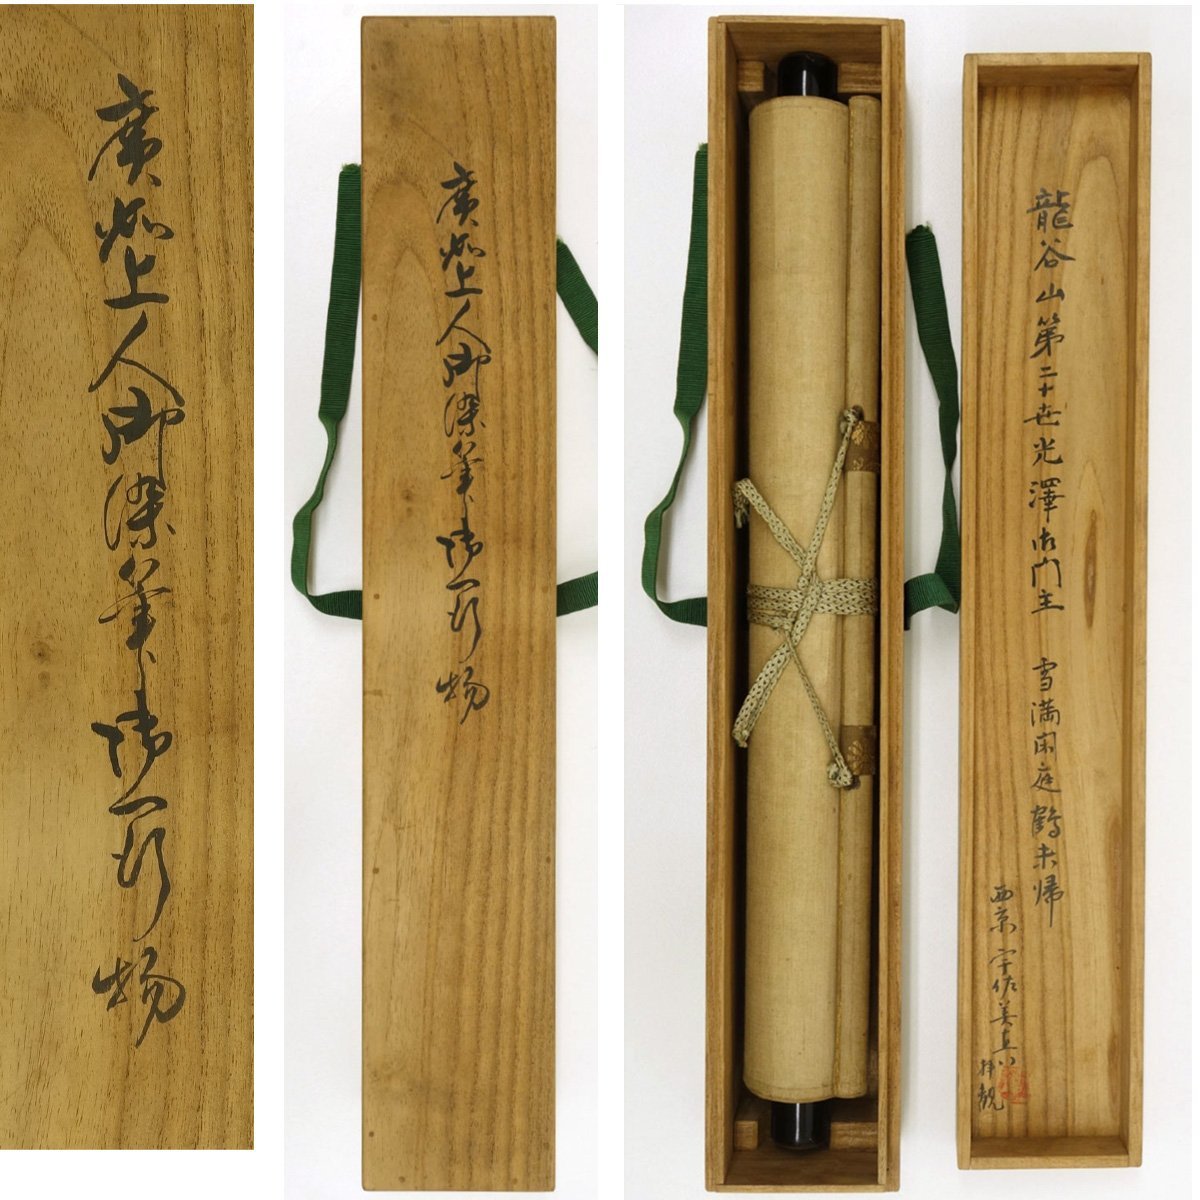 廣如上人御染筆御一行物
廣如上人御染筆御一行物
龍谷山第二十世光澤御門主　雪満閑庭鶴未帰
西京　宇佐美直八拝観